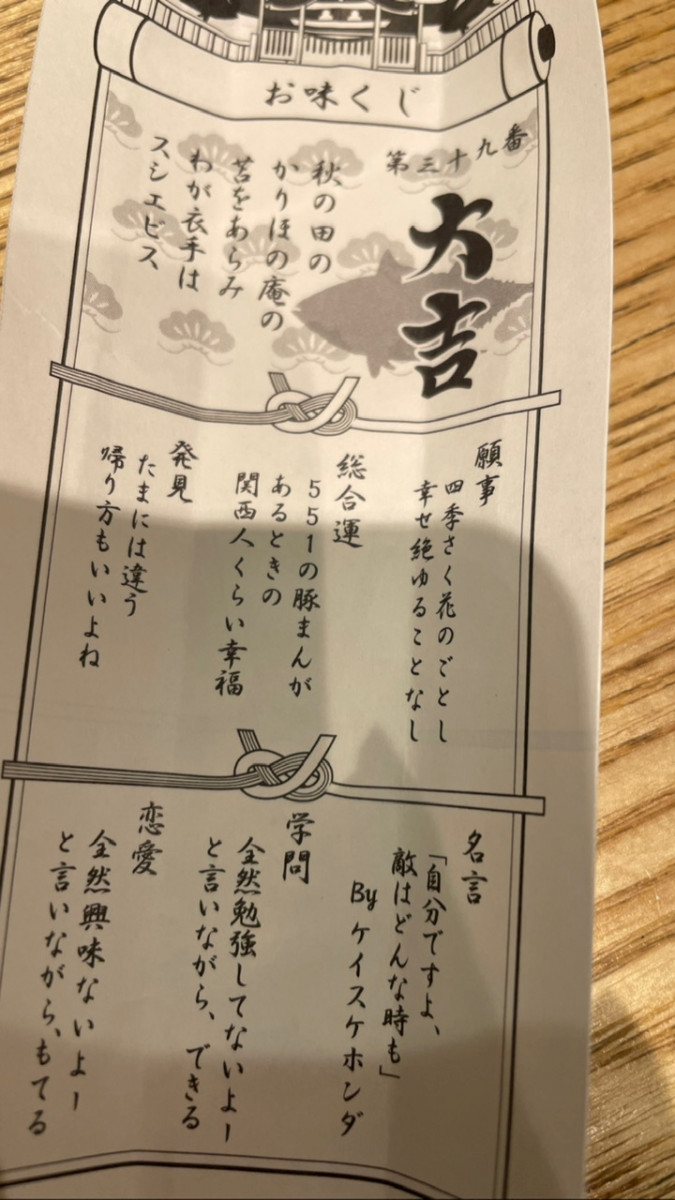 お味くじ
第三十九番
大吉
秋の田の
かりほの庵の
苫をあらみ
わが衣手は
スシエビス
願事
四季さく花のごとし
幸せ絶ゆることなし
総合運
551の豚まんが
あるときの
関西人くらい幸福
発見
たまには違う
帰り方もいいよね
名言
「自分ですよ、
敵はどんな時も」
By ケイスケホンダ
学問
全然勉強してないよー
と言いながら、できる
恋愛
全然興味ないよー
と言いながら、もてる